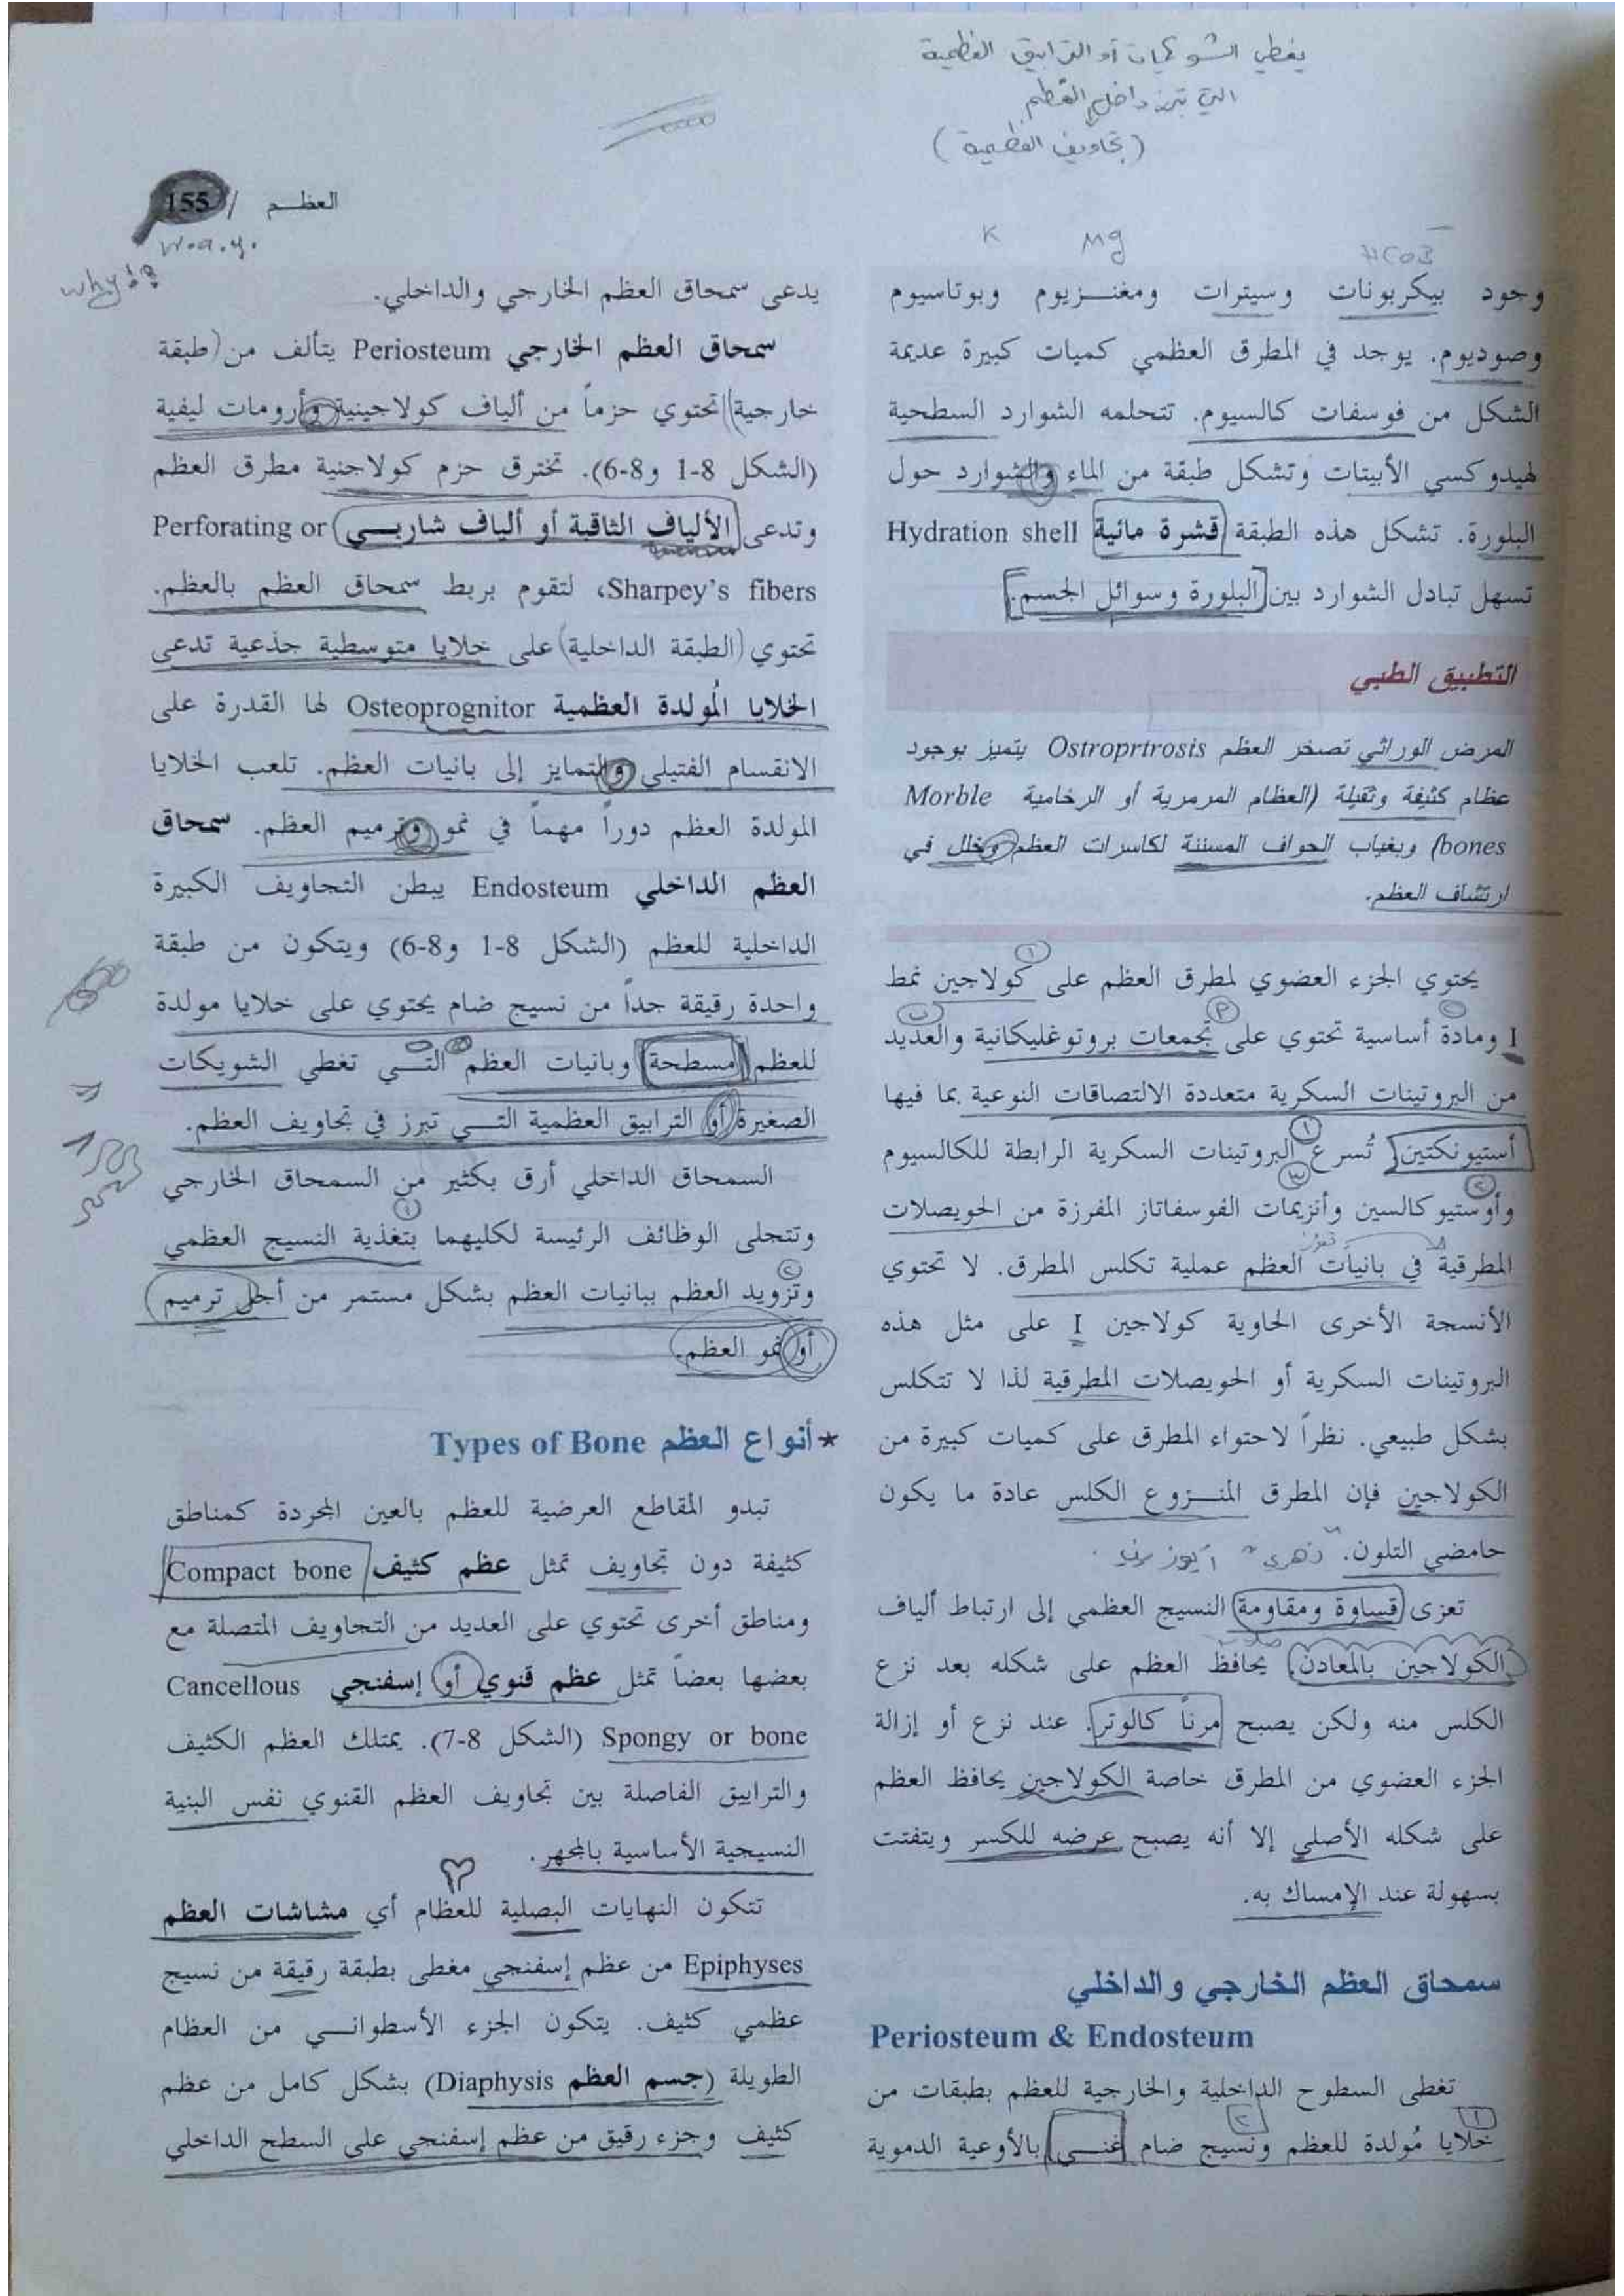 يغطي الشويكات أو الترابيق العظمية
التي تبرز داخل العظم
(تجاويف العظمية)
155 / العظـم
why!?
K Mg HCO3⁻
وجود بيكربونات وسيترات ومغنـزيوم وبوتاسيوم
وصوديوم. يوجد في المطرق العظمي كميات كبيرة عديمة
الشكل من فوسفات كالسيوم. تتحلمه الشوارد السطحية
لهيدوكسي الأبيتات وتشكل طبقة من الماء والشوارد حول
البلورة. تشكل هذه الطبقة قشرة مائية Hydration shell
تسهل تبادل الشوارد بين البلورة وسوائل الجسم.
التطبيق الطبي
المرض الوراثي تصخر العظم Ostroprtrosis يتميز بوجود
عظام كثيفة وثقيلة (العظام المرمرية أو الرخامية Morble
bones) وبغياب الحواف المسننة لكاسرات العظم وخلل في
ارتشاف العظم.
يحتوي الجزء العضوي لمطرق العظم على كولاجين نمط
I ومادة أساسية تحتوي على تجمعات بروتوغليكانية والعديد
من البروتينات السكرية متعددة الالتصاقات النوعية بما فيها
أستيونكتين تُسرع البروتينات السكرية الرابطة للكالسيوم
وأوستيوكالسين وأنزيمات الفوسفاتاز المفرزة من الحويصلات
المطرقية في بانيات العظم عملية تكلس المطرق. لا تحتوي
الأنسجة الأخرى الحاوية كولاجين I على مثل هذه
البروتينات السكرية أو الحويصلات المطرقية لذا لا تتكلس
بشكل طبيعي. نظراً لاحتواء المطرق على كميات كبيرة من
الكولاجين فإن المطرق المنـزوع الكلس عادة ما يكون
حامضي التلون.
تعزى قساوة ومقاومة النسيج العظمي إلى ارتباط ألياف
الكولاجين بالمعادن. يحافظ العظم على شكله بعد نزع
الكلس منه ولكن يصبح مرناً كالوتر. عند نزع أو إزالة
الجزء العضوي من المطرق خاصة الكولاجين يحافظ العظم
على شكله الأصلي إلا أنه يصبح عرضه للكسر ويتفتت
بسهولة عند الإمساك به.
سمحاق العظم الخارجي والداخلي
Periosteum & Endosteum
تغطى السطوح الداخلية والخارجية للعظم بطبقات من
خلايا مُولدة للعظم ونسيج ضام غنـي بالأوعية الدموية
يدعى سمحاق العظم الخارجي والداخلي.
سمحاق العظم الخارجي Periosteum يتألف من (طبقة
خارجية) تحتوي حزماً من ألياف كولاجينية وأرومات ليفية
(الشكل 8-1 و8-6). تخترق حزم كولاجنية مطرق العظم
وتدعى الألياف الثاقبة أو ألياف شاربـي Perforating or
Sharpey's fibers، لتقوم بربط سمحاق العظم بالعظم.
تحتوي (الطبقة الداخلية) على خلايا متوسطية جذعية تدعى
الخلايا المُولدة العظمية Osteoprognitor لها القدرة على
الانقسام الفتيلي والتمايز إلى بانيات العظم. تلعب الخلايا
المولدة العظم دوراً مهماً في نمو وترميم العظم. سمحاق
العظم الداخلي Endosteum يبطن التجاويف الكبيرة
الداخلية للعظم (الشكل 8-1 و8-6) ويتكون من طبقة
واحدة رقيقة جداً من نسيج ضام يحتوي على خلايا مولدة
للعظم مسطحة وبانيات العظم التـي تغطي الشويكات
الصغيرة أو الترابيق العظمية التـي تبرز في تجاويف العظم.
السمحاق الداخلي أرق بكثير من السمحاق الخارجي
وتتجلى الوظائف الرئيسة لكليهما بتغذية النسيج العظمي
وتزويد العظم ببانيات العظم بشكل مستمر من أجل ترميم
أو نمو العظم.
* أنواع العظم Types of Bone
تبدو المقاطع العرضية للعظم بالعين المجردة كمناطق
كثيفة دون تجاويف تمثل عظم كثيف Compact bone
ومناطق أخرى تحتوي على العديد من التجاويف المتصلة مع
بعضها بعضاً تمثل عظم قنوي أو إسفنجي Cancellous
Spongy or bone (الشكل 8-7). يمتلك العظم الكثيف
والترابيق الفاصلة بين تجاويف العظم القنوي نفس البنية
النسيجية الأساسية بالمجهر.
تتكون النهايات البصلية للعظام أي مشاشات العظم
Epiphyses من عظم إسفنجي مغطى بطبقة رقيقة من نسيج
عظمي كثيف. يتكون الجزء الأسطوانـي من العظام
الطويلة (جسم العظم Diaphysis) بشكل كامل من عظم
كثيف وجزء رقيق من عظم إسفنجي على السطح الداخلي